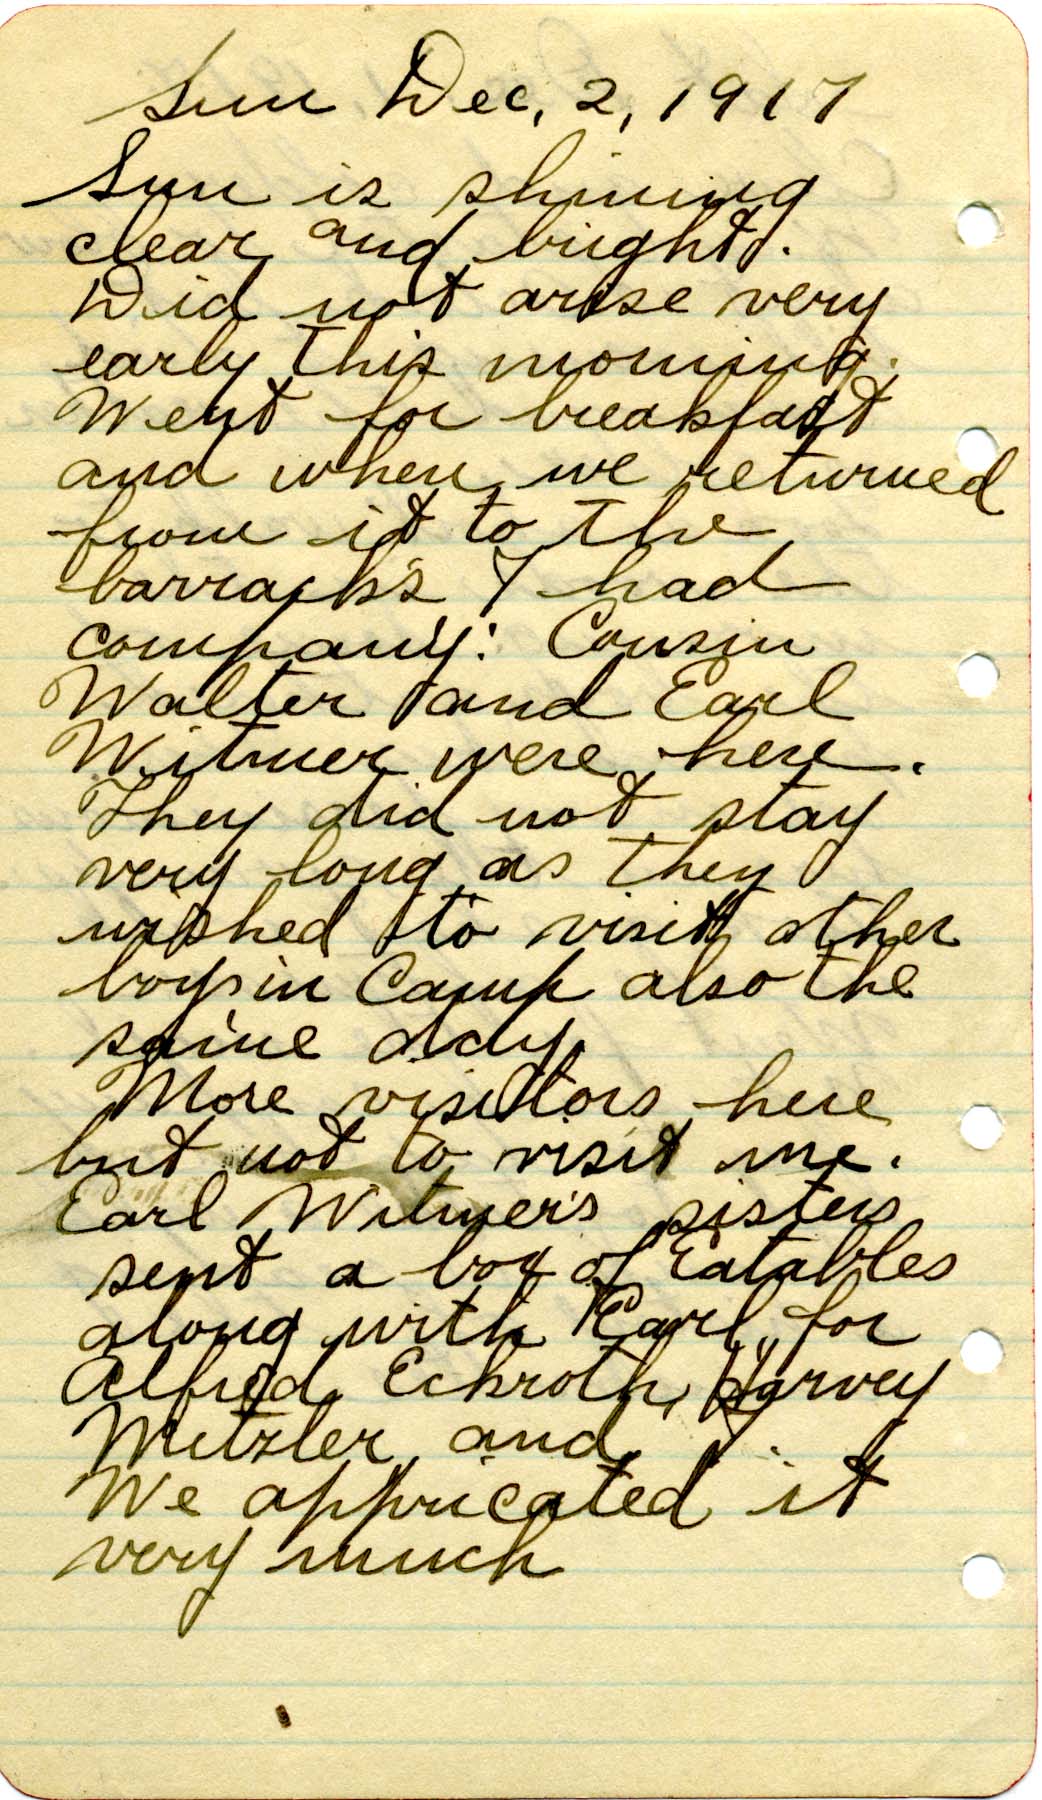 Sun Dec, 2, 1917
Sun is shining
clear and bright.
Did not arise very
early this morning.
Went for breakfast
and when we returned
from it to the
barracks I had
company: Cousin
Walter and Earl
Witmer were here.
They did not stay
very long as they
wished to visit other
boys in Camp also the
same day.
More visitors here
but not to visit me.
Earl Witmer's sisters
sent a box of Eatables
along with Earl, for
Alfred Eckroth, Harvey
Metzler and
We appricated it
very much